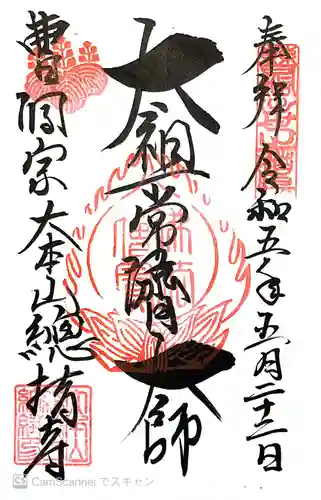 奉拝 令和五年五月二十二日
太祖常済大師
曹洞宗大本山總持寺
CamScannerでスキャン